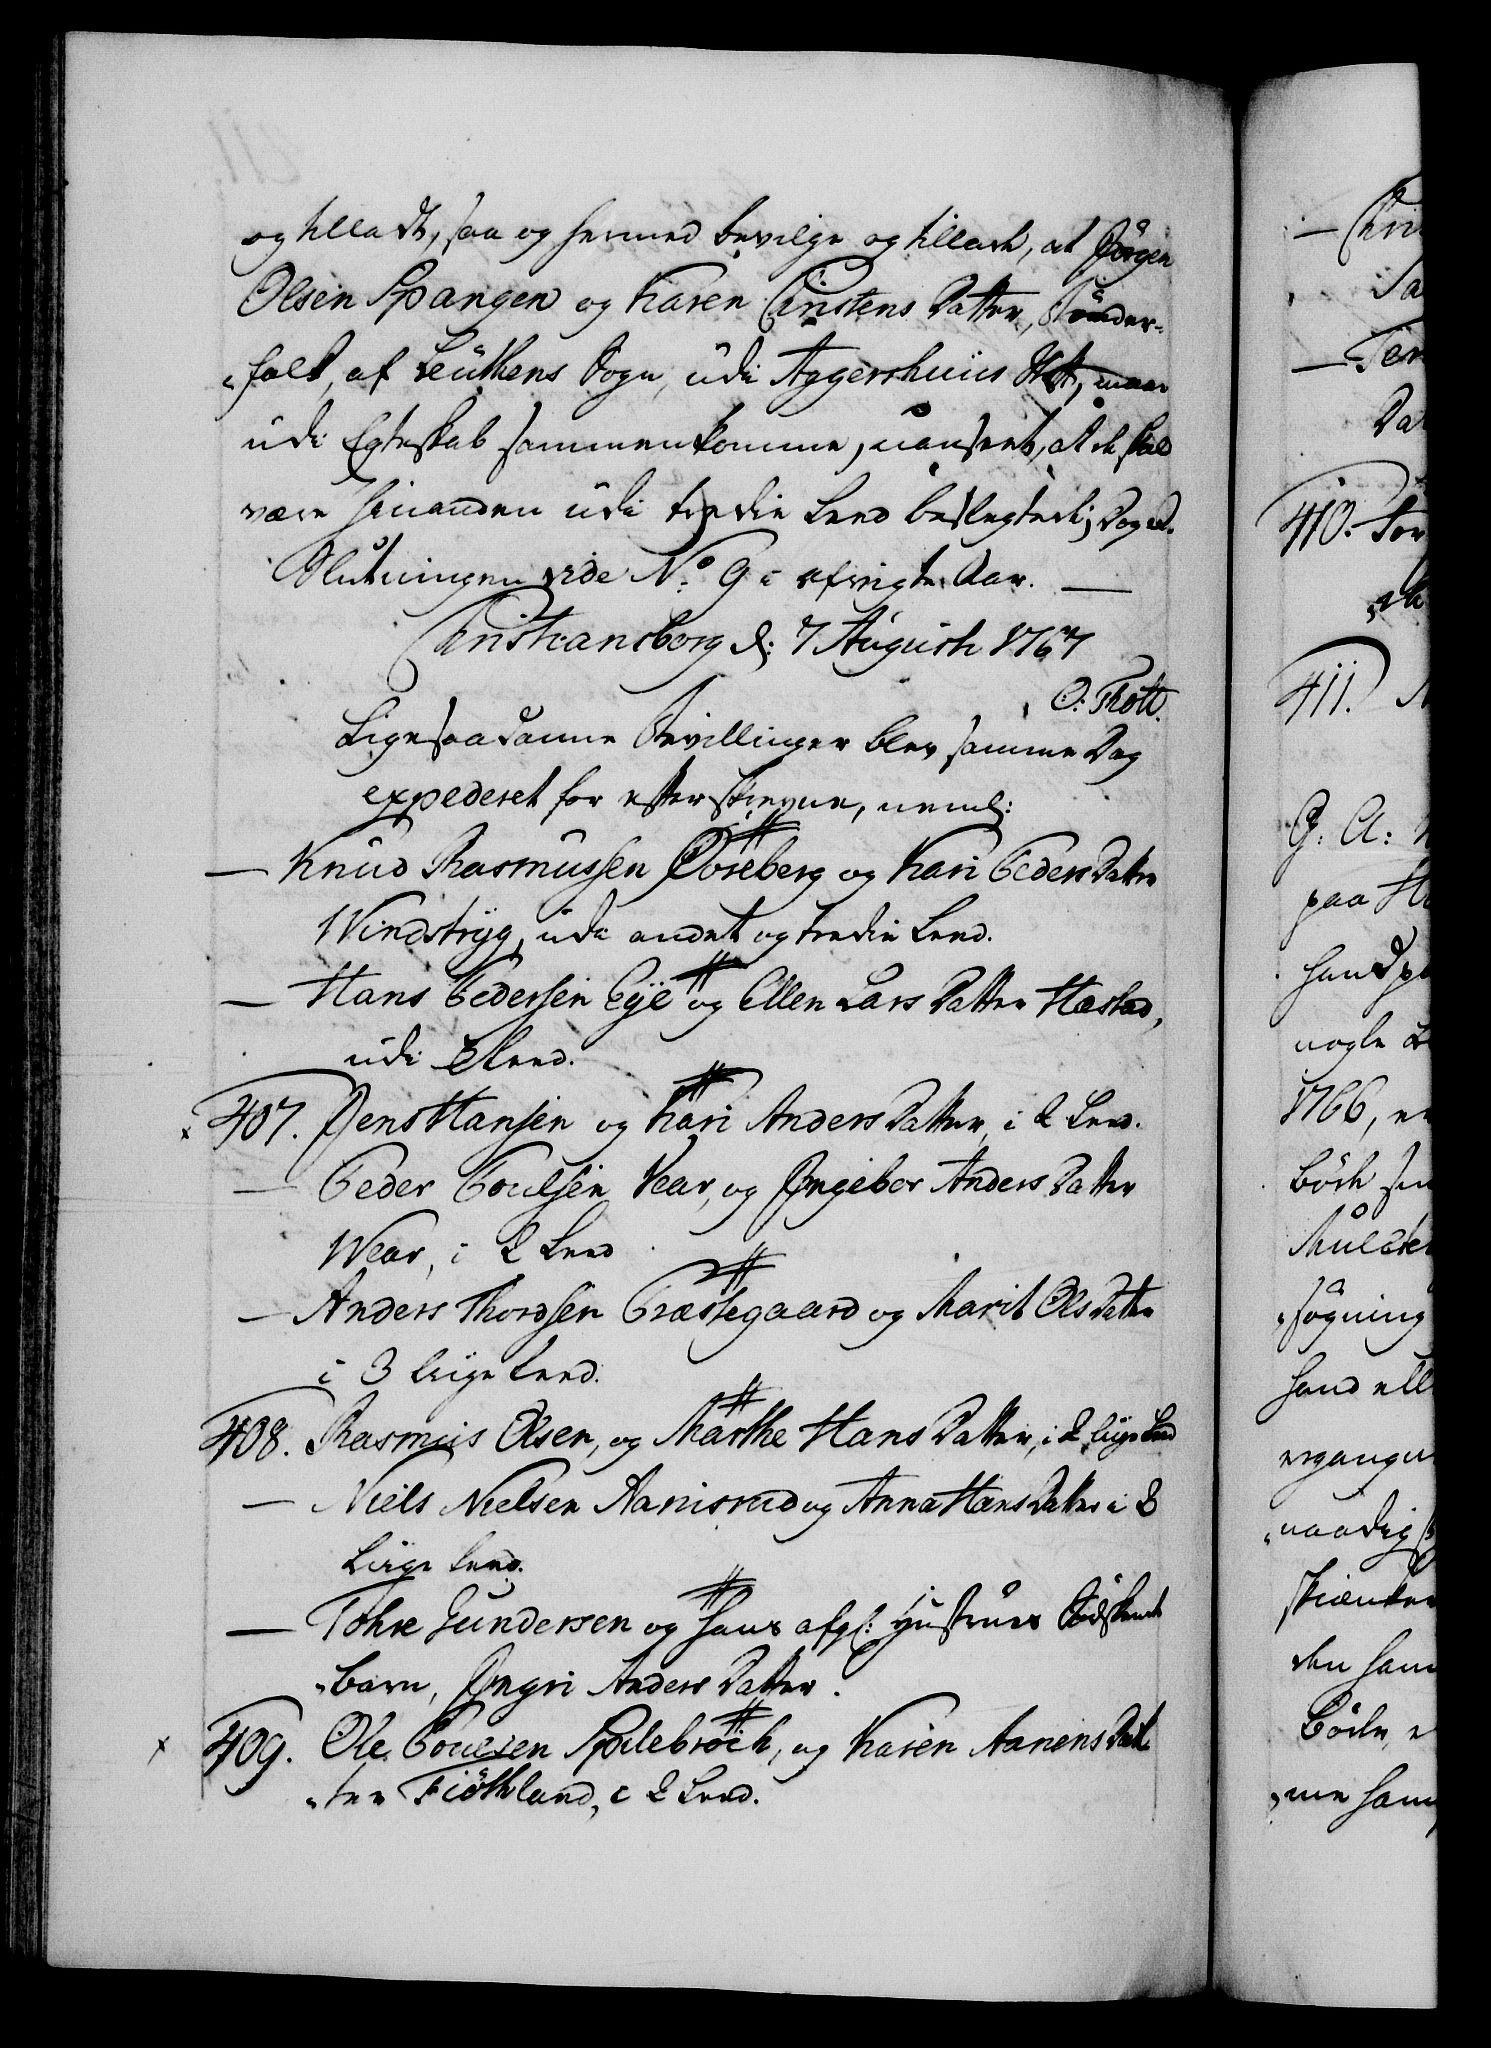 og tilladt, saa og hermed bevilge og tillade, at Jørgen
Olsen Spangen og Karen Christens Datter, Bønder-
"folk, af Leuthens Sogn, udi Aggershuus Stift, maae
udi Egteskab sammenkomme, uanseet, at de skal
være hinanden udi tredie Leed beslegtede; Dog ad.
Slutningen vide No. 9 i afvigte Aar. —
Christiansborg d: 7 Augusti 1767
O: Thott.
Ligesaadanne Bevillinger blev samme Dag
expederet for efterskrevne, neml:
— Knud Rasmussen Øvreberg og Kari Peders Datter
Windstryg, udi andet og tredie Leed.
— Hans Pedersen Eye og Ellen Lars Datter Hæstad,
udi Leed.
x 407. Jens Hansen og Kari Anders Datter, i 2 Leed.
— Peder Poulsen Vear, og Ingebor Anders Datter
Wear, i 2 Leed
— Anders Thordsen Præstegaard og Marit Ols Datter
i 3 liige Leed.
408. Rasmus Olsen, og Marthe Hans Datter, i 2 liige Leed
— Niels Nielsen og Anna Hans Datter i 3
Liige Leed.
— Tohre Gundersen og hans afg: Hustrues Sødskende
"barn, Ingri Anders Datter.
x 409. Ole Poulsen og Karen Aanens Dat-
"ter Fiøthland, i 2 Leed.
— Chri
Sa
— Ter
Dat
410. Tor
411.
G: A:
paa H
nogle
1766,
Børk
søgning
hand ell
ngangen
den ham